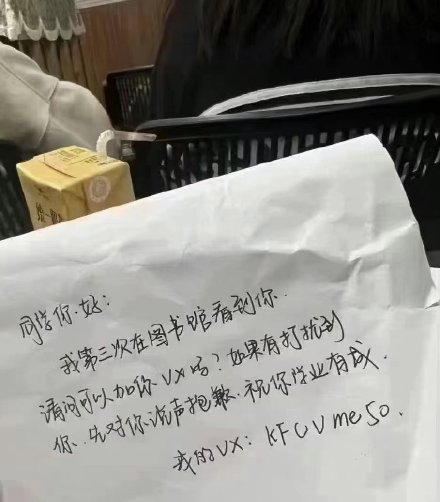 同学你好：
我第三次在图书馆看到你.
请问可以加你VX吗？如果有打扰到
你.先对你说声抱歉.祝你学业有成.
我的VX：KFCVme50.